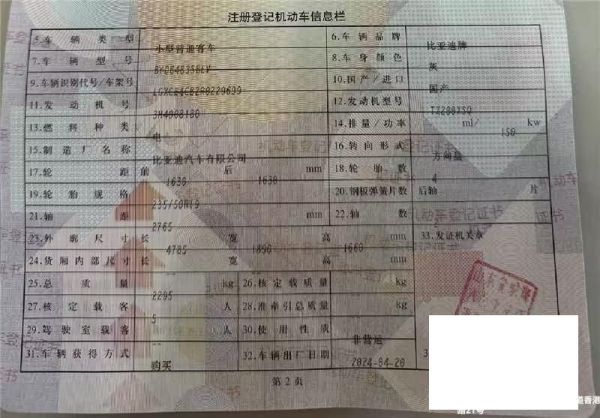 注册登记机动车信息栏
5.车辆类型 小型普通客车 6.车辆品牌 比亚迪牌
7.车辆型号 8.车身颜色 灰
9.车辆识别代号/车架号 10.国产/进口 国产
11.发动机号 12.发动机型号 TZ200XSQ
13.燃料种类 电 14.排量/功率 ml/ 150 kw
15.制造厂名称 比亚迪汽车有限公司 16.转向形式 方向盘
17.轮距 前 1630 后 1630 mm 18.轮胎数 4
19.轮胎规格 235/50R19 20.钢板弹簧片数 后轴 片
21.轴距 2765 mm 22.轴数
23.外廓尺寸 长 4785 宽 1890 高 1660 mm 33.发证机关章
24.货厢内部尺寸 长 宽 高 mm
25.总质量 2295 kg 26.核定载质量 kg
27.核定载客 5 人 28.准牵引总质量 kg
29.驾驶室载客 人 30.使用性质 非营运
31.车辆获得方式 购买 32.车辆出厂日期 2024-04-20
第2页
道香港
路21号